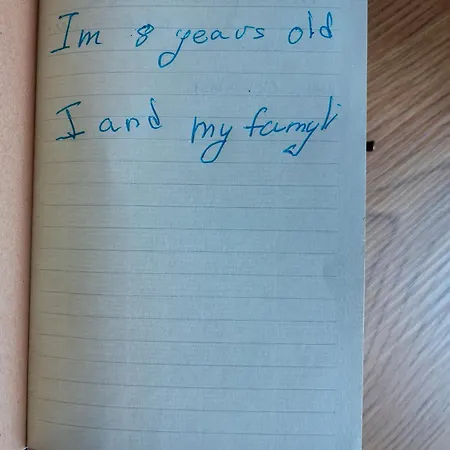 Im 8 years old
I and my famyli